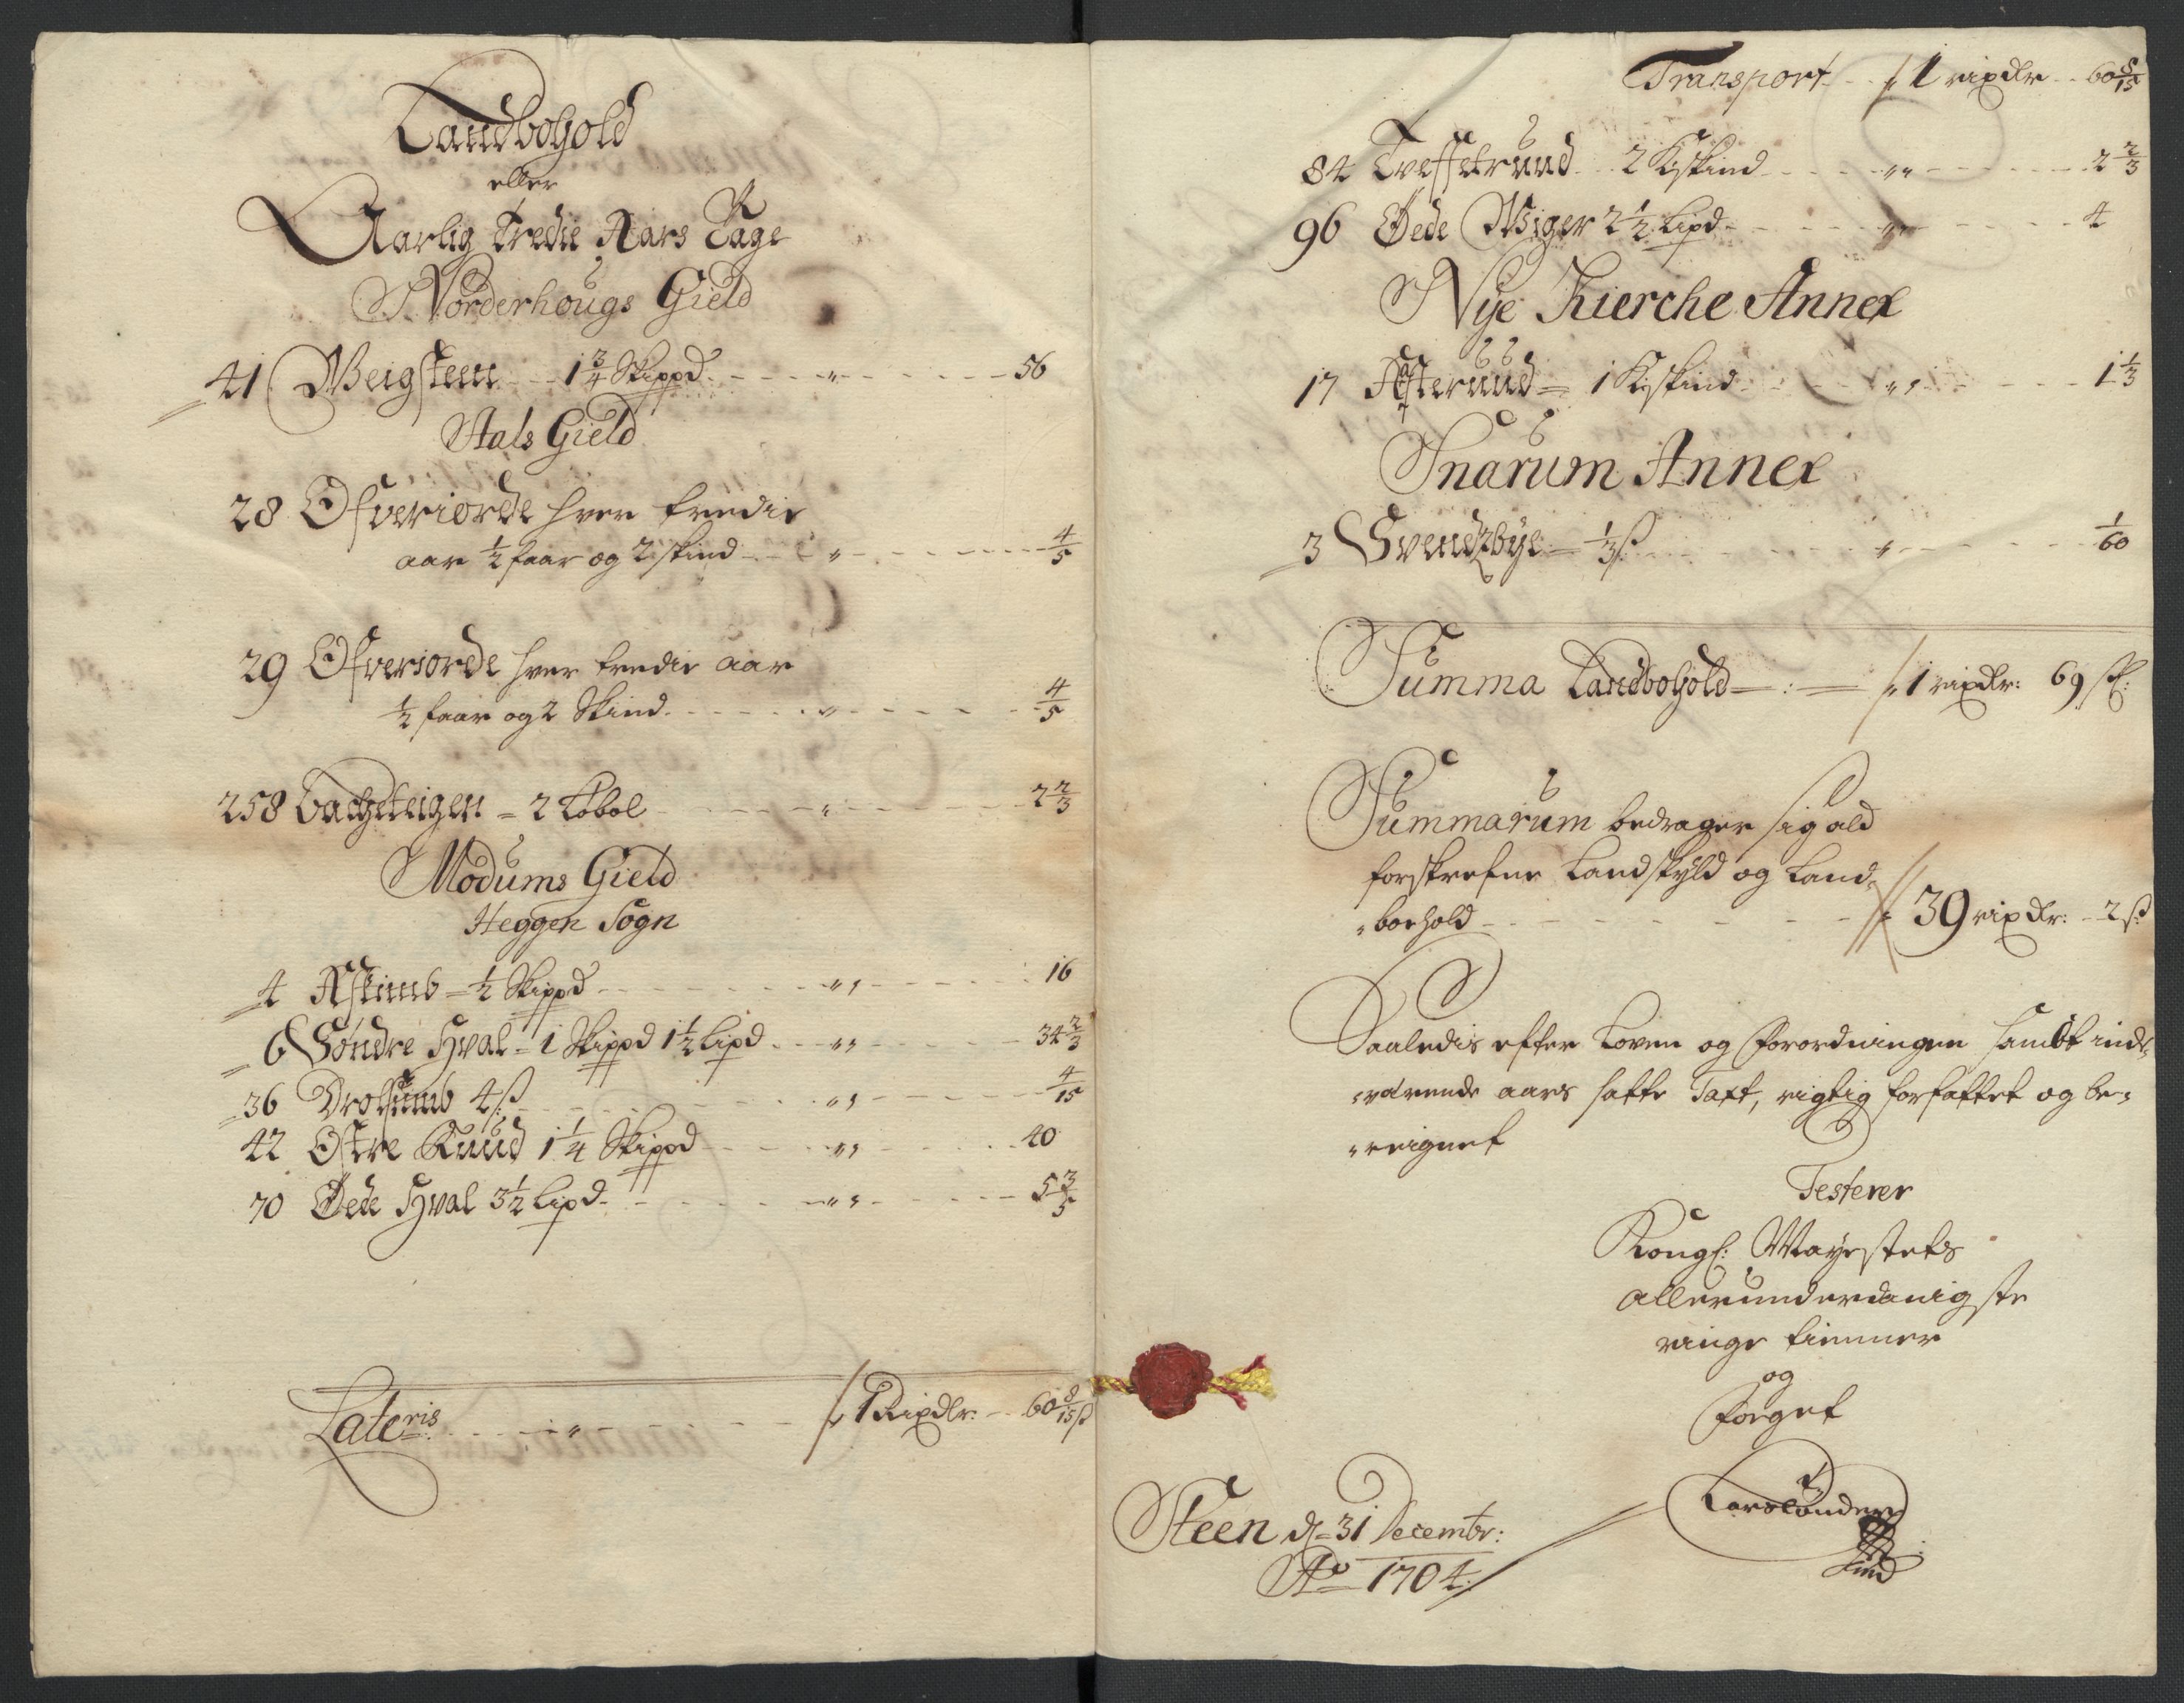 Landbohold
eller
Aarlig tredie Aars Tage
Norderhougs Gield
41 Weigsteen 1 3/4 Skippd - - - " - - - 56
Aals Gield
28 Ofveriorde hver tredie
aar 1/2 faar og 2 skind - - " - - - 4/5
29 Ofveriorde hver tredie aar
1/2 faar og 2 Skind - - - " - - - 4/5
258 - 2 - - - " - - - 2 2/3
Modums Gield
Heggen Sogn
4 Askimb - 1/2 Skippd - - - " - - - 16
6 Søndre Hval - 1 Skippd 1 1/2 Lipd - - " - - - 34 2/3
36 Drolsumb 4 ß - - - " - - - 4/15
42 Ostre Ruud 1 1/4 Skippd - - - " - - - 40
70 Øede Hval 3 1/2 Lipd - - - " - - - 5 3/5
Lateris - - - " - - - 1 Rixdlr: - 60 8/15 ß
Transport - - 1 rixdlr - - 60 8/15
84 2 Kiskind - - - " - - - 2 2/3
96 Øede Wiger 2 1/2 Lipd - - - " - - - 4
Nye Kierche Annex
17 Asteruud = 1 Kiskind - - - " - - - 1 1/3
Snarum Annex
3 Svendzbye = 1/3 ß - - - " - - - 1/60
Summa Landbohold - : - 1 rixdlr: 69 ß:
Summarum bedrager sig ald
forskrefne Landskyld og Land-
-boehold - - - 39 rixdlr: - 2 ß
Saaledis efter Loven og Forordningen sambt inde-
-værende aars satte Taxt, rigtig forfattet og be-
-reignet
Testerer
Kongl: Mayestets
allerunderdanigste
ringe tienner
og
Foeget
Steen d - 31 Decembr:
Ao 1704: